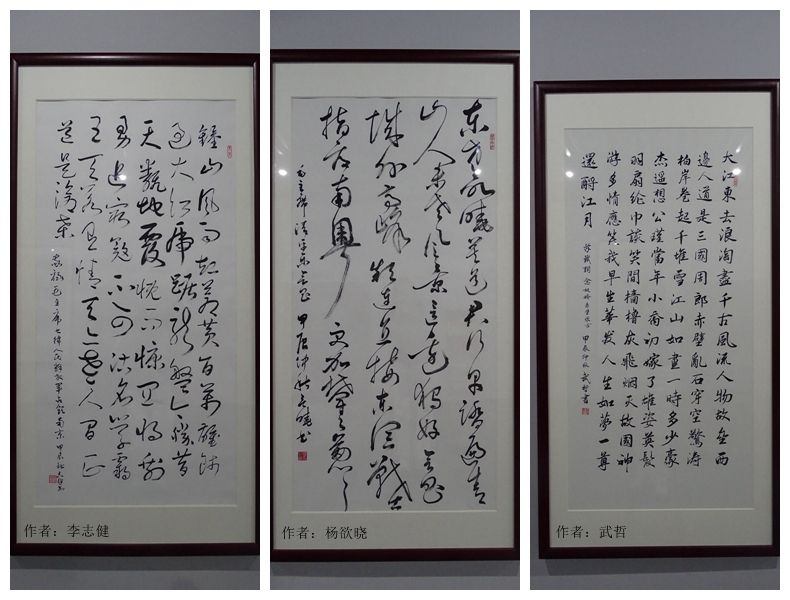 鍾山风雨起苍黄百万雄师
过大江虎踞龙盘今胜昔
天翻地覆慨而慷宜将剩
勇追穷寇不可沽名学霸
王天若有情天亦老人间正
道是沧桑
恭录毛主席七律人民解放军占领南京 甲辰秋
作者：李志健
东方欲晓莫道君行早踏遍青
山人未老风景这边独好会昌
城外高峰颠连直接东溟战士
指看南粤更加郁郁葱葱
毛主席清平乐会昌 甲辰仲秋欲晓书
作者：杨欲晓
大江東去浪淘盡千古風流人物故壘西
邊人道是三國周郎赤壁亂石穿空驚濤
拍岸卷起千堆雪江山如畫一時多少豪
杰遥想公瑾當年小喬初嫁了雄姿英發
羽扇纶巾談笑間檣櫓灰飛烟灭故國神
游多情應笑我早生華发人生如夢一尊
還酹江月
蘇軾詞念奴嬌赤壁懷古 甲辰仲秋武哲書
作者：武哲